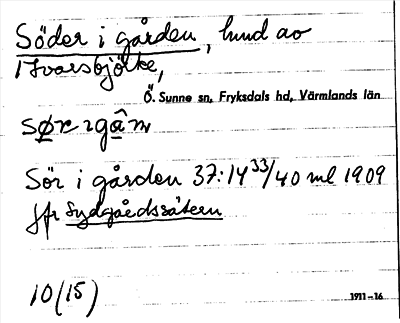 Söder i gården, hmd av
Ivarsbjörke,
Ö. Sunne sn, Fryksdals hd, Värmlands län
Sör i gården 37:14 33/40 ml 1909
jfr Sydgårdssätern
10(15)
1911–16